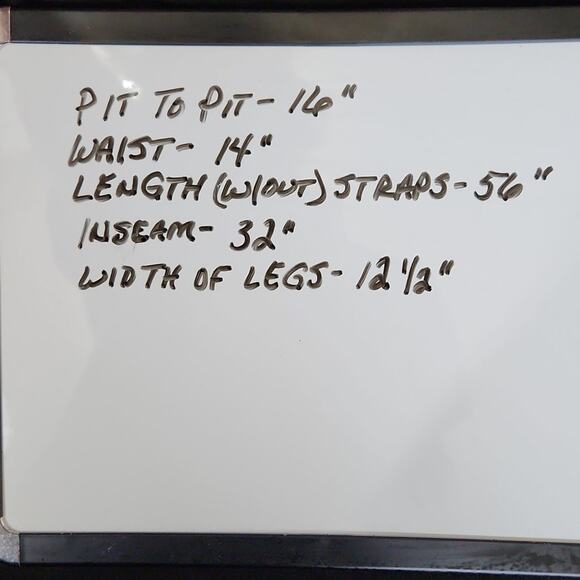 PIT TO PIT- 16"
WAIST- 14"
LENGTH (W/OUT) STRAPS- 56"
INSEAM- 32"
WIDTH OF LEGS- 12 1/2"